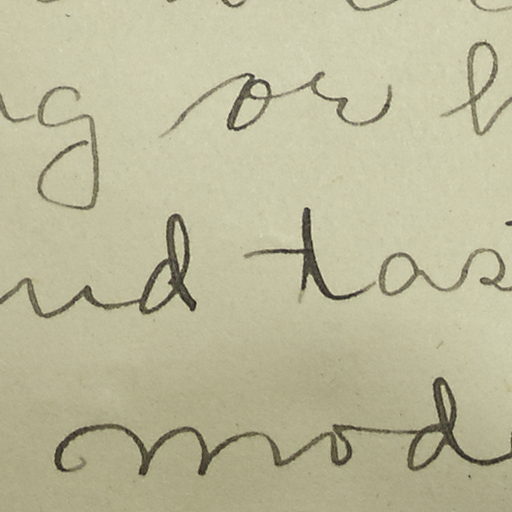 g or h
nd tas
mod